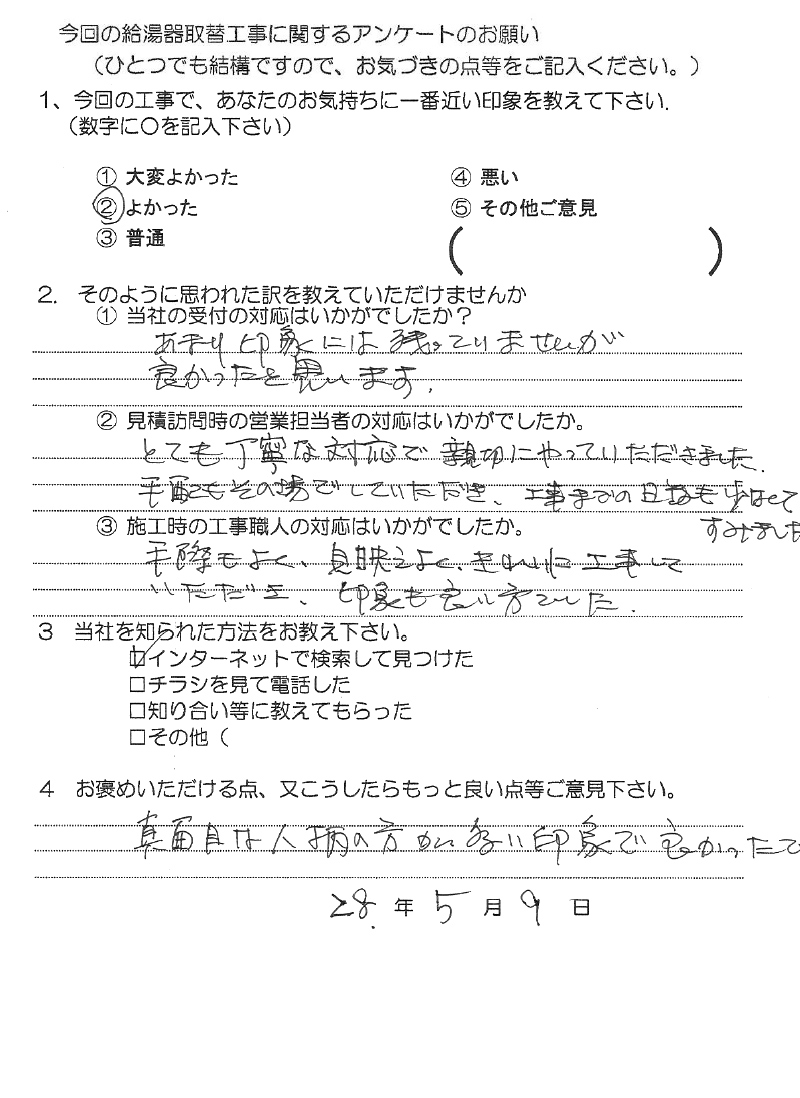 今回の給湯器取替工事に関するアンケートのお願い
（ひとつでも結構ですので、お気づきの点等をご記入ください。）
1、今回の工事で、あなたのお気持ちに一番近い印象を教えて下さい.
（数字に〇を記入下さい）
① 大変よかった ④ 悪い
② よかった ⑤ その他ご意見
③ 普通 （ ）
2. そのように思われた訳を教えていただけませんか
① 当社の受付の対応はいかがでしたか？
あまり印象には残っていませんが
良かったと思います.
② 見積訪問時の営業担当者の対応はいかがでしたか。
とても丁寧な対応で親切にやっていただきました.
手配もその場でしていただき、工事までの日程も
すみました
③ 施工時の工事職人の対応はいかがでしたか。
手際もよく、見映えよく、きれいに工事して
いただき、印象も良い方でした.
3 当社を知られた方法をお教え下さい。
☑インターネットで検索して見つけた
□チラシを見て電話した
□知り合い等に教えてもらった
□その他（
4 お褒めいただける点、又こうしたらもっと良い点等ご意見下さい。
真面目な人柄の方が多い印象で良かったで
28. 年 5 月 9 日